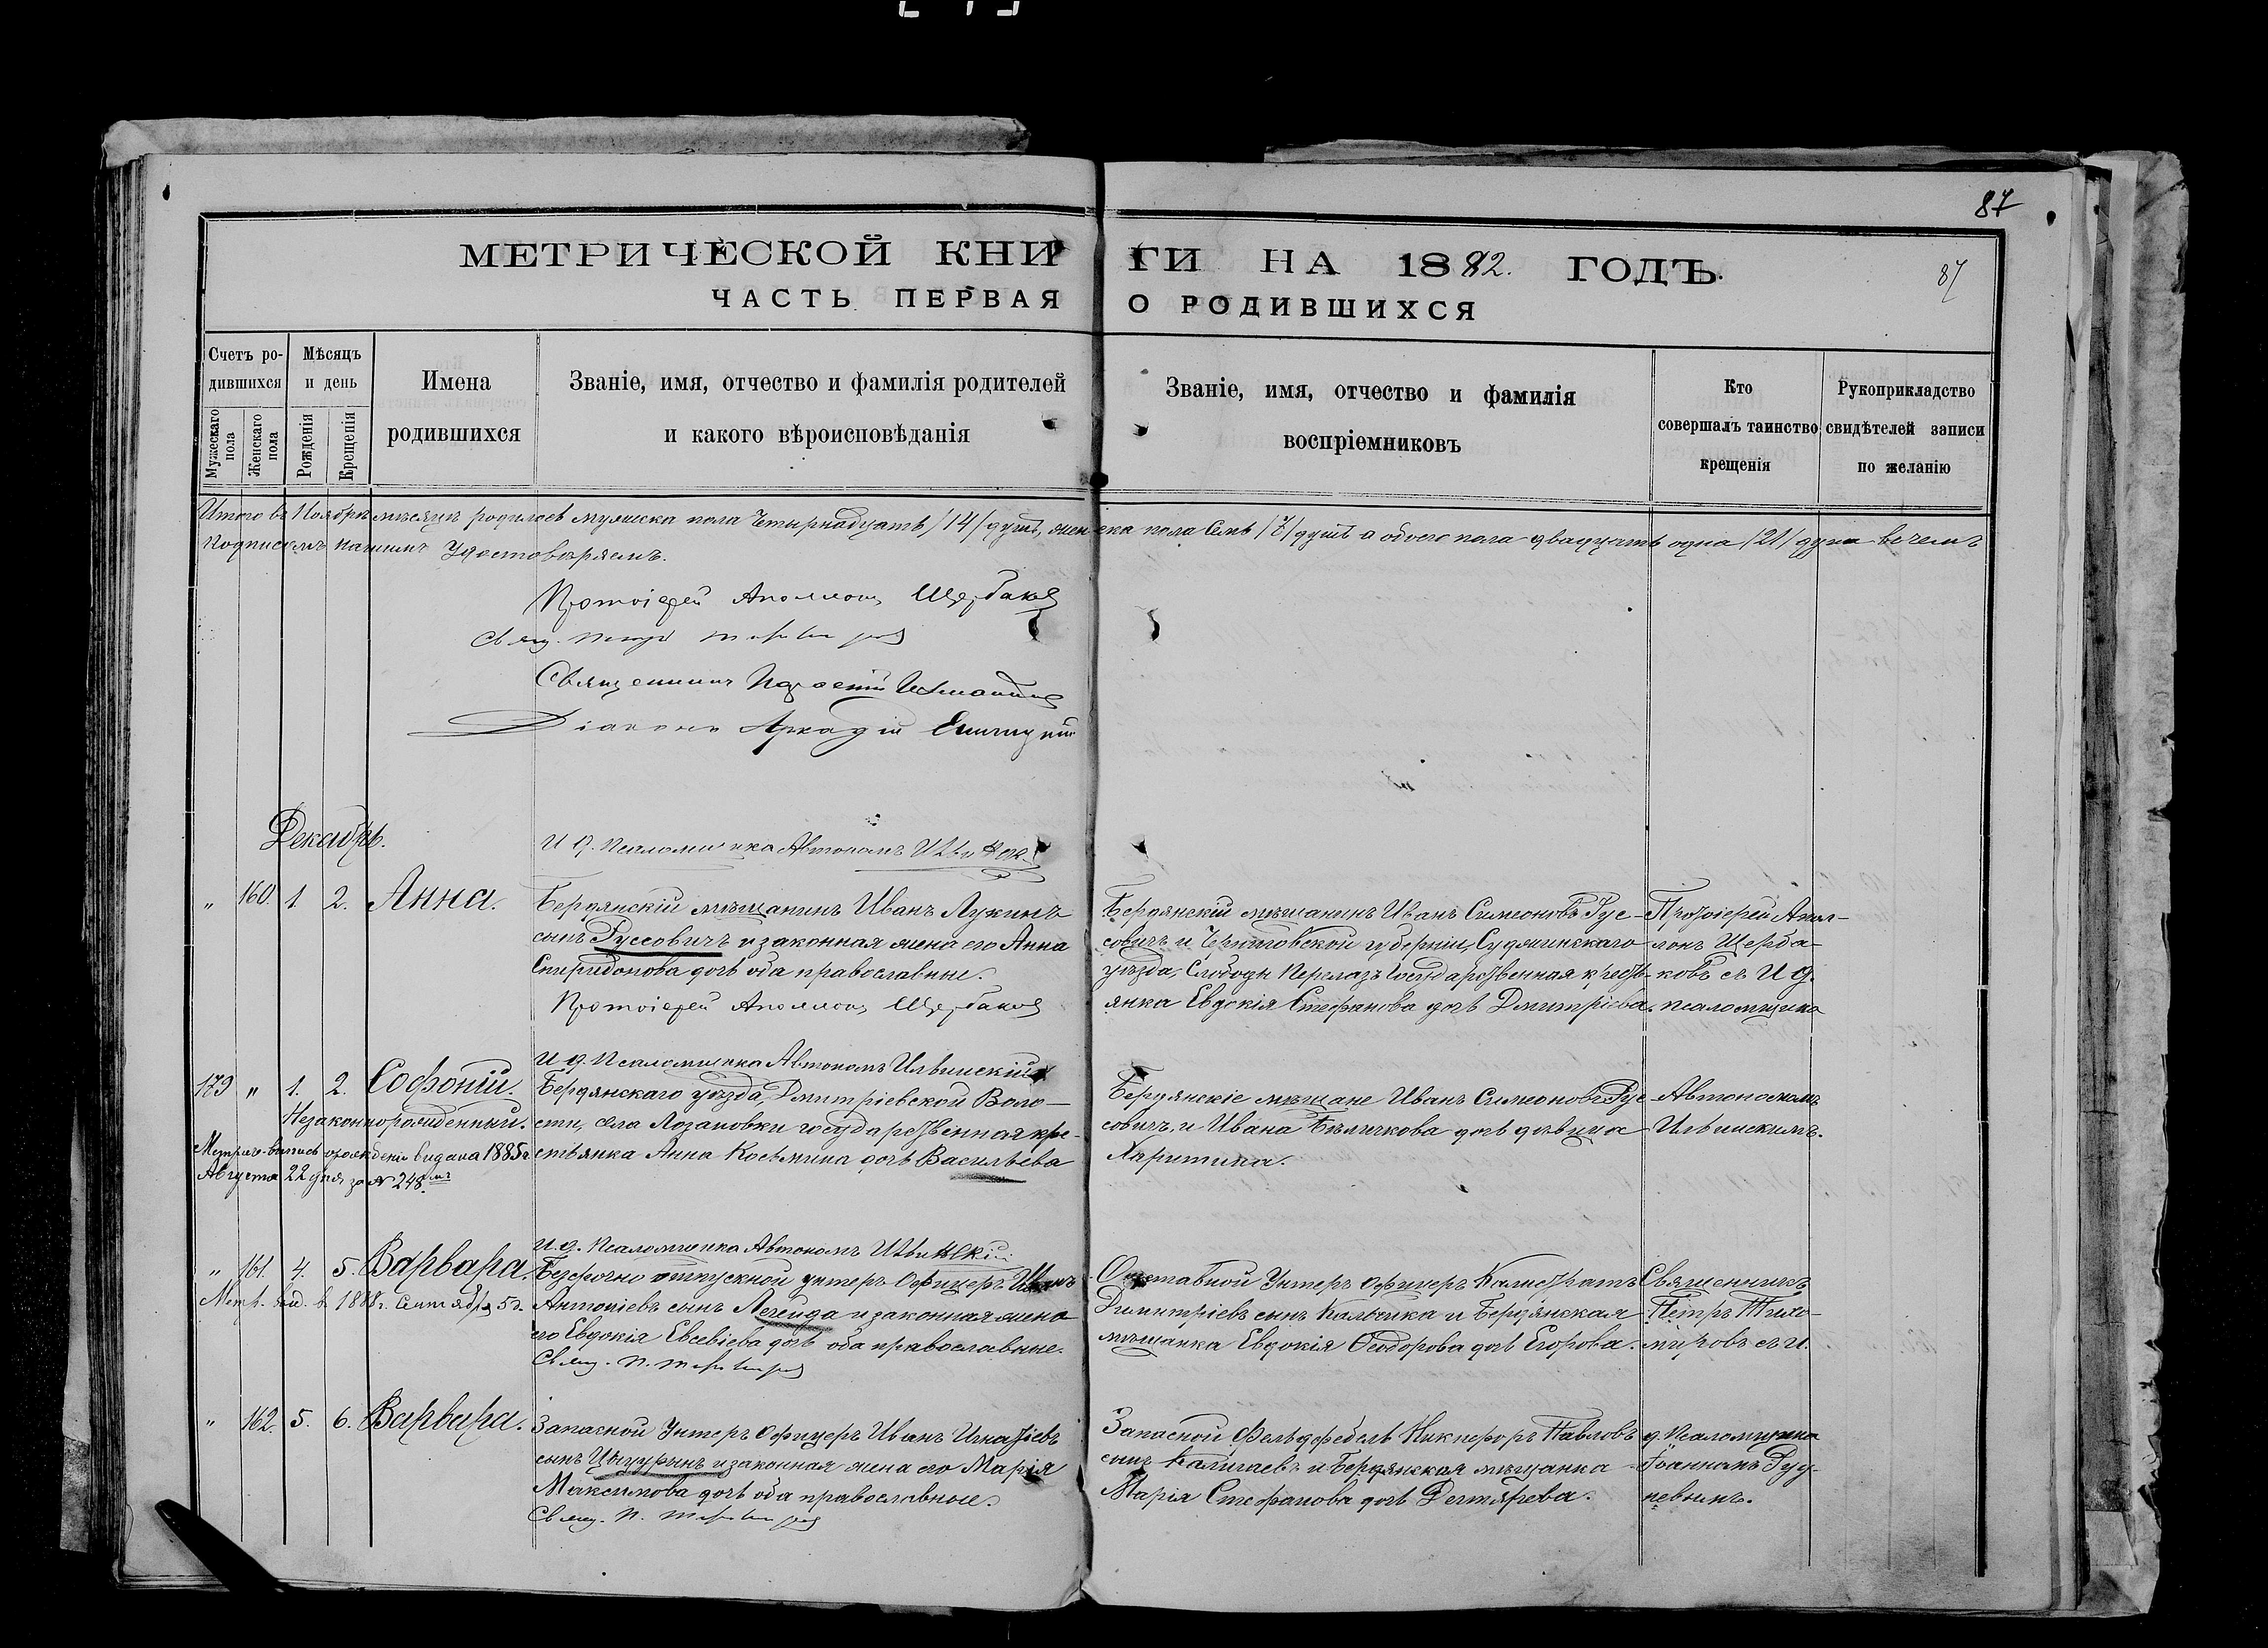 87
МЕТРИЧЕСКОЙ КНИГИ НА 1882. ГОДЪ.
87
ЧАСТЬ ПЕРВАЯ О РОДИВШИХСЯ
Счетъ ро-
дившихся
Мужескаго пола
Женскаго пола
Мѣсяцъ
и день
Рожденія
Крещенія
Имена
родившихся
Званіе, имя, отчество и фамилія родителей
и какого вѣроисповѣданія
Званіе, имя, отчество и фамилія
воспріемниковъ
Кто
совершалъ таинство
крещенія
Рукоприкладство
свидѣтелей записи
по желанію
Итого въ Ноябрѣ мѣсяцѣ родилось мужеска пола Четырнадцать /14/ душъ, женска пола Семь /7/ душъ а обоего пола двадцать одна /21/ душа въ чемъ
подписомъ нашимъ удостовѣряемъ.
Протоіерей Аполлонъ Щербаковъ
Свящ. Петръ Тихомировъ
Священникъ
Діаконъ Аркадій
Декабрь.
И д. Псаломщика Автономъ Ильинскій
" 160. 1. 2. Анна.
Бердянскій мѣщанинъ Иванъ Лукинъ
сынъ Руссовичъ и законная жена его Анна
Спиридонова дочь оба православные.
Протоіерей Аполлонъ Щербаковъ
Бердянскій мѣщанинъ Иванъ Симеоновъ Рус-
совичъ и Черниговской губерніи, Суджинскаго
уѣзда, Слободы Перелазъ Государственная кресть-
янка Евдокія Стефанова дочь Дмитріева.
Протоіерей Апол-
лонъ Щерба-
ковъ съ И д.
псаломщика
И д. Псаломщика Автономъ Ильинскій
179 " 1. 2. Софоній.
Незаконнорожденный.
Метрич. выпись о рожденіи выдана 1885 г.
Августа 22 дня за № 248
Бердянскаго уѣзда, Дмитріевской Воло-
сти, села Лозановки государственная кре-
стьянка Анна Косьмина дочь Васильева
Бердянскіе мѣщане Иванъ Симеоновъ Рус-
совичъ, и Ивана Бѣличкова дочь дѣвица
Харитина.
Автономомъ
Ильинскимъ.
И. д. Псаломщика Автономъ Ильинскій
" 161. 4. 5. Варвара.
Метр. выд. в 1888 г. Сентября 5 д.
Безсрочно отпускной унтеръ Офицеръ Иванъ
Антоніевъ сынъ Легейда и законная жена
его Евдокія Евсевіева дочь оба православные.
Свящ. П. Тихомировъ
Отставной Унтеръ Офицеръ Калистратъ
Димитріевъ сынъ Кальчика и Бердянская
мѣщанка Евдокія Ѳеодорова дочь Егорова.
Священникъ
Петръ Тихо-
мировъ съ И.
" 162. 5. 6. Варвара.
Запасной Унтеръ Офицеръ Иванъ Игнатіевъ
сынъ Цыгурынъ и законная жена его Марія
Максимова дочь оба православные.
Свящ. П. Тихомировъ
Запасной Фельдфебель Никифоръ Павловъ
сынъ Каличаевъ и Бердянская мѣщанка
Марія Стефанова дочь Дегтярева.
д. Псаломщика
Іоанномъ Руд-
невымъ.